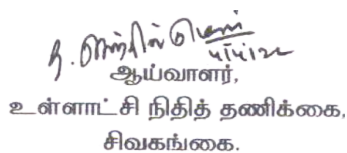 ஆய்வாளர்,
உள்ளாட்சி நிதித் தணிக்கை,
சிவகங்கை.